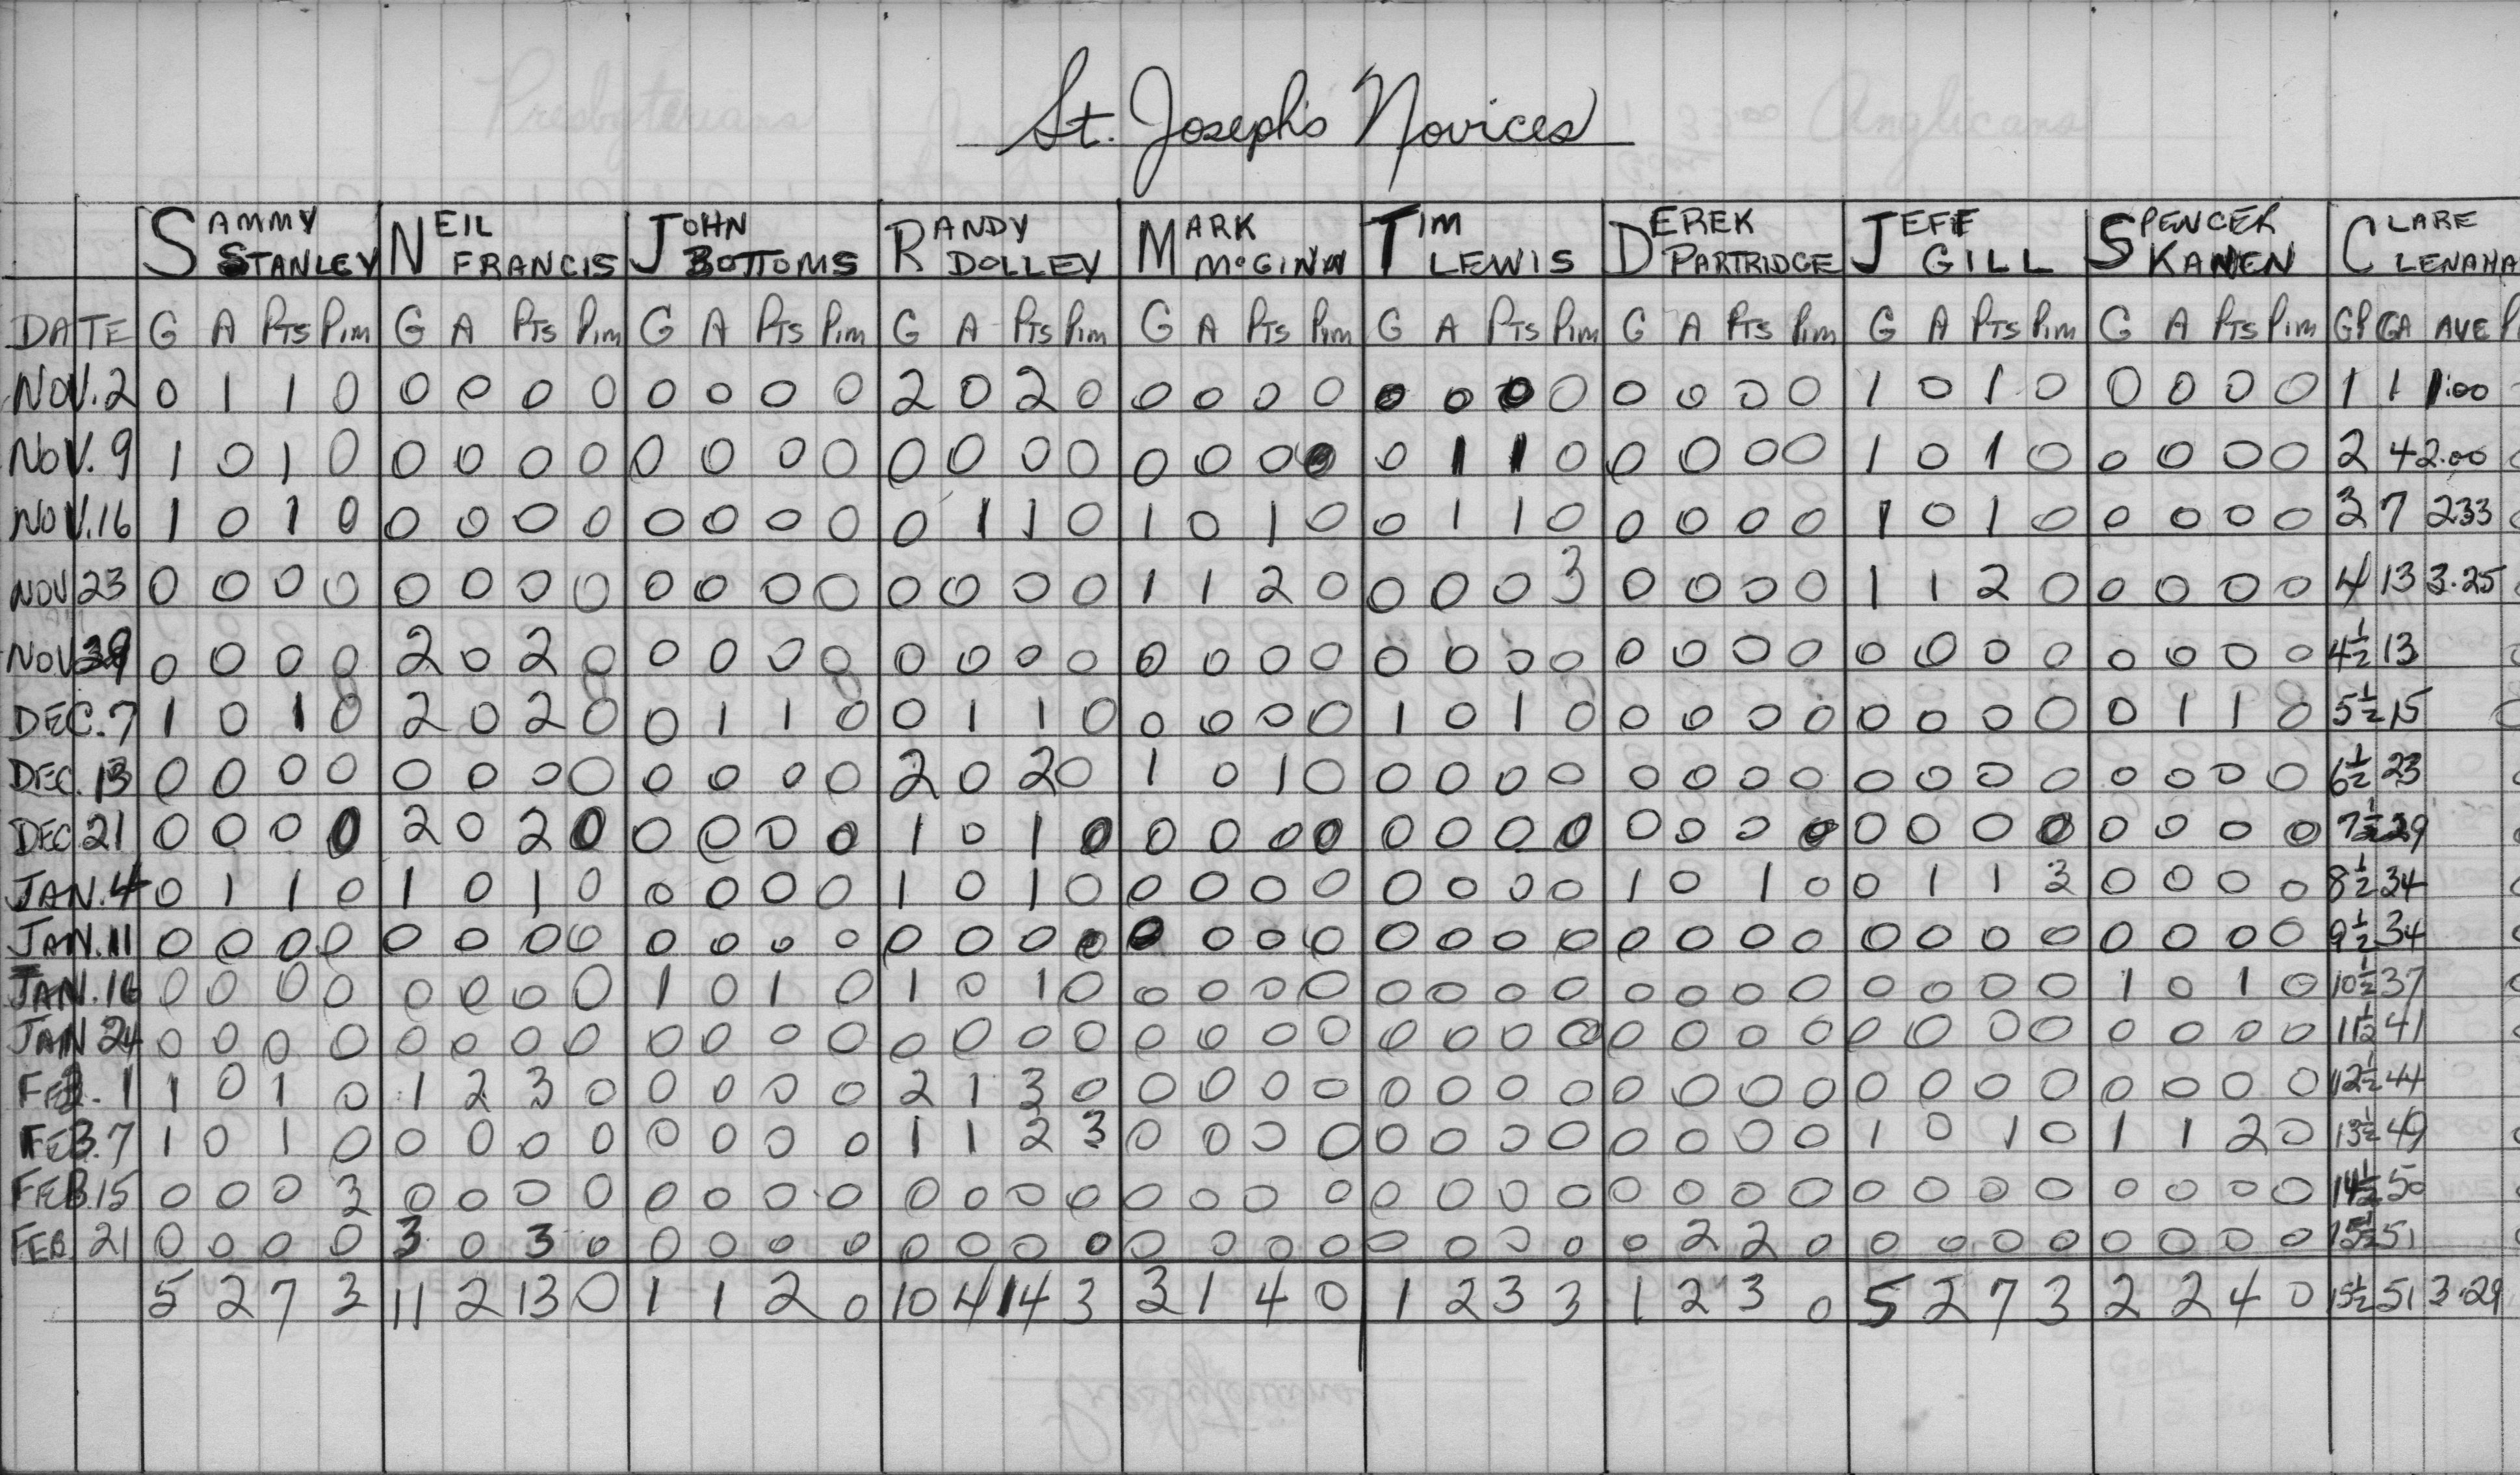 St. Joseph's Novices
SAMMY STANLEY NEIL FRANCIS JOHN BOTTOMS RANDY DOLLEY MARK McGINN TIM LEWIS DEREK PARTRIDGE JEFF GILL SPENCER KANEN CLARE CLENAHA
DATE G A PTS Pim G A PTS Pim G A PTS Pim G A PTS Pim G A PTS Pim G A PTS Pim G A PTS Pim G A PTS Pim G A PTS Pim GP GA AVE P
NOV. 2 0 1 1 0 0 0 0 0 0 0 0 0 2 0 2 0 0 0 0 0 0 0 0 0 0 0 0 0 1 0 1 0 0 0 0 0 1 1 1.00
NOV. 9 1 0 1 0 0 0 0 0 0 0 0 0 0 0 0 0 0 0 0 0 0 1 1 0 0 0 0 0 1 0 1 0 0 0 0 0 2 4 2.00
NOV. 16 1 0 1 0 0 0 0 0 0 0 0 0 0 1 1 0 1 0 1 0 0 1 1 0 0 0 0 0 1 0 1 0 0 0 0 0 3 7 233
NOV 23 0 0 0 0 0 0 0 0 0 0 0 0 0 0 0 0 1 1 2 0 0 0 0 3 0 0 0 0 1 1 2 0 0 0 0 0 4 13 3.25
NOV 0 0 0 0 2 0 2 0 0 0 0 0 0 0 0 0 0 0 0 0 0 0 0 0 0 0 0 0 0 0 0 0 0 0 0 0 4½ 13
DEC. 7 1 0 1 0 2 0 2 0 0 1 1 0 0 1 1 0 0 0 0 0 1 0 1 0 0 0 0 0 0 0 0 0 0 1 1 0 5½ 15
DEC. 13 0 0 0 0 0 0 0 0 0 0 0 0 2 0 2 0 1 0 1 0 0 0 0 0 0 0 0 0 0 0 0 0 0 0 0 0 6½ 23
DEC 21 0 0 0 0 2 0 2 0 0 0 0 0 1 0 1 0 0 0 0 0 0 0 0 0 0 0 0 0 0 0 0 0 0 0 0 0 7½ 29
JAN. 4 0 1 1 0 1 0 1 0 0 0 0 0 1 0 1 0 0 0 0 0 0 0 0 0 1 0 1 0 0 1 1 3 0 0 0 0 8½ 34
JAN. 11 0 0 0 0 0 0 0 0 0 0 0 0 0 0 0 0 0 0 0 0 0 0 0 0 0 0 0 0 0 0 0 0 0 0 0 0 9½ 34
JAN. 16 0 0 0 0 0 0 0 0 1 0 1 0 1 0 1 0 0 0 0 0 0 0 0 0 0 0 0 0 0 0 0 0 1 0 1 0 10½ 37
JAN 24 0 0 0 0 0 0 0 0 0 0 0 0 0 0 0 0 0 0 0 0 0 0 0 0 0 0 0 0 0 0 0 0 0 0 0 0 11½ 41
FEB. 1 1 0 1 0 1 2 3 0 0 0 0 0 2 1 3 0 0 0 0 0 0 0 0 0 0 0 0 0 0 0 0 0 0 0 0 0 12½ 44
FEB. 7 1 0 1 0 0 0 0 0 0 0 0 0 1 1 2 3 0 0 0 0 0 0 0 0 0 0 0 0 1 0 1 0 1 1 2 0 13½ 49
FEB. 15 0 0 0 3 0 0 0 0 0 0 0 0 0 0 0 0 0 0 0 0 0 0 0 0 0 0 0 0 0 0 0 0 0 0 0 0 14½ 50
FEB. 21 0 0 0 0 3 0 3 0 0 0 0 0 0 0 0 0 0 0 0 0 0 0 0 0 0 2 2 0 0 0 0 0 0 0 0 0 15½ 51
5 2 7 3 11 2 13 0 1 1 2 0 10 4 14 3 3 1 4 0 1 2 3 3 1 2 3 0 5 2 7 3 2 2 4 0 15½ 51 3.29